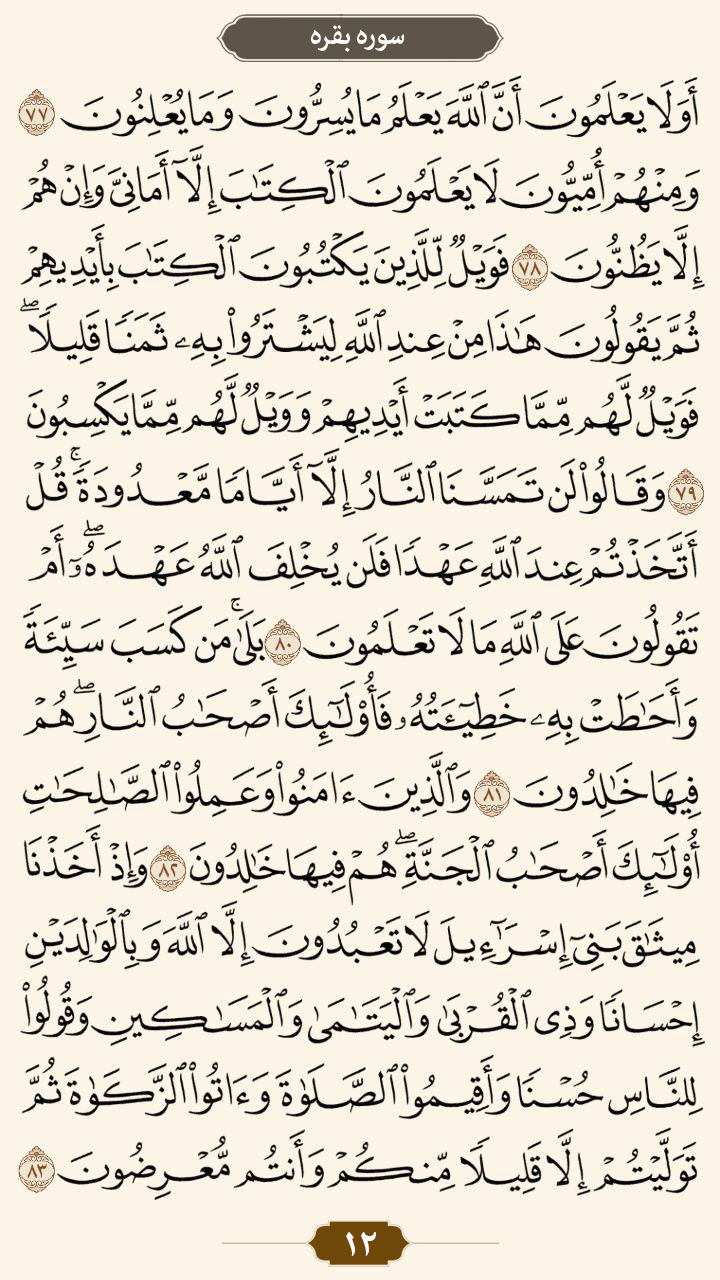 سوره بقره
أَوَلَا يَعْلَمُونَ أَنَّ ٱللَّهَ يَعْلَمُ مَا يُسِرُّونَ وَمَا يُعْلِنُونَ ٧٧
وَمِنْهُمْ أُمِّيُّونَ لَا يَعْلَمُونَ ٱلْكِتَٰبَ إِلَّآ أَمَانِىَّ وَإِنْ هُمْ
إِلَّا يَظُنُّونَ ٧٨ فَوَيْلٌ لِّلَّذِينَ يَكْتُبُونَ ٱلْكِتَٰبَ بِأَيْدِيهِمْ
ثُمَّ يَقُولُونَ هَٰذَا مِنْ عِندِ ٱللَّهِ لِيَشْتَرُوا۟ بِهِۦ ثَمَنًا قَلِيلًا ۖ
فَوَيْلٌ لَّهُم مِّمَّا كَتَبَتْ أَيْدِيهِمْ وَوَيْلٌ لَّهُم مِّمَّا يَكْسِبُونَ
٧٩ وَقَالُوا۟ لَن تَمَسَّنَا ٱلنَّارُ إِلَّآ أَيَّامًا مَّعْدُودَةً ۚ قُلْ
أَتَّخَذْتُمْ عِندَ ٱللَّهِ عَهْدًا فَلَن يُخْلِفَ ٱللَّهُ عَهْدَهُۥٓ ۖ أَمْ
تَقُولُونَ عَلَى ٱللَّهِ مَا لَا تَعْلَمُونَ ٨٠ بَلَىٰ ۚ مَن كَسَبَ سَيِّئَةً
وَأَحَٰطَتْ بِهِۦ خَطِيٓـَٔتُهُۥ فَأُو۟لَٰٓئِكَ أَصْحَٰبُ ٱلنَّارِ ۖ هُمْ
فِيهَا خَٰلِدُونَ ٨١ وَٱلَّذِينَ ءَامَنُوا۟ وَعَمِلُوا۟ ٱلصَّٰلِحَٰتِ
أُو۟لَٰٓئِكَ أَصْحَٰبُ ٱلْجَنَّةِ ۖ هُمْ فِيهَا خَٰلِدُونَ ٨٢ وَإِذْ أَخَذْنَا
مِيثَٰقَ بَنِىٓ إِسْرَٰٓءِيلَ لَا تَعْبُدُونَ إِلَّا ٱللَّهَ وَبِٱلْوَٰلِدَيْنِ
إِحْسَانًا وَذِى ٱلْقُرْبَىٰ وَٱلْيَتَٰمَىٰ وَٱلْمَسَٰكِينِ وَقُولُوا۟
لِلنَّاسِ حُسْنًا وَأَقِيمُوا۟ ٱلصَّلَوٰةَ وَءَاتُوا۟ ٱلزَّكَوٰةَ ثُمَّ
تَوَلَّيْتُمْ إِلَّا قَلِيلًا مِّنكُمْ وَأَنتُم مُّعْرِضُونَ ٨٣
١٢